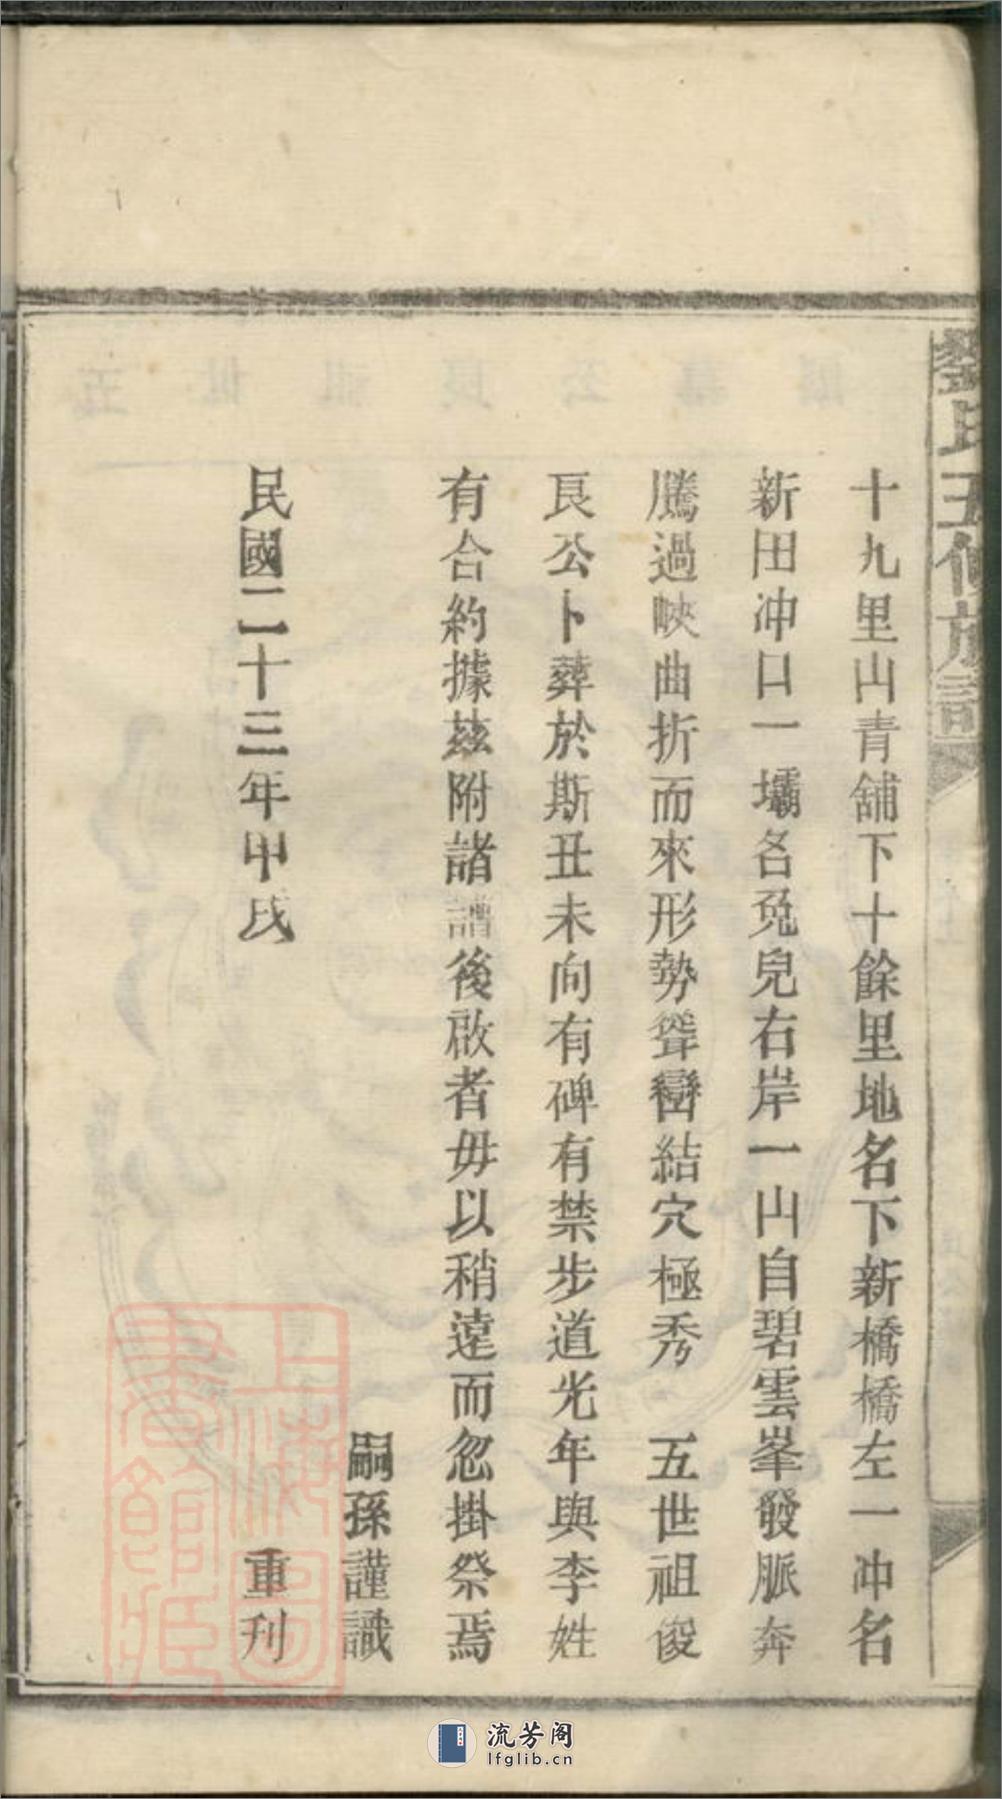 劉氏五修族譜
十九里山青舖下十餘里地名下新橋橋左一冲名
新田冲口一壩名兔兒右岸一山自碧雲峯發脈奔
騰過峽曲折而來形勢聳巒結穴極秀 五世祖俊
良公卜葬於斯丑未向有碑有禁步道光年與李姓
有合約據茲附諸譜後啟者毋以稍遠而忽掛祭焉
嗣孫謹識
民國二十三年甲戌 重刊
上海圖書館藏
流芳阁
lfglib.cn